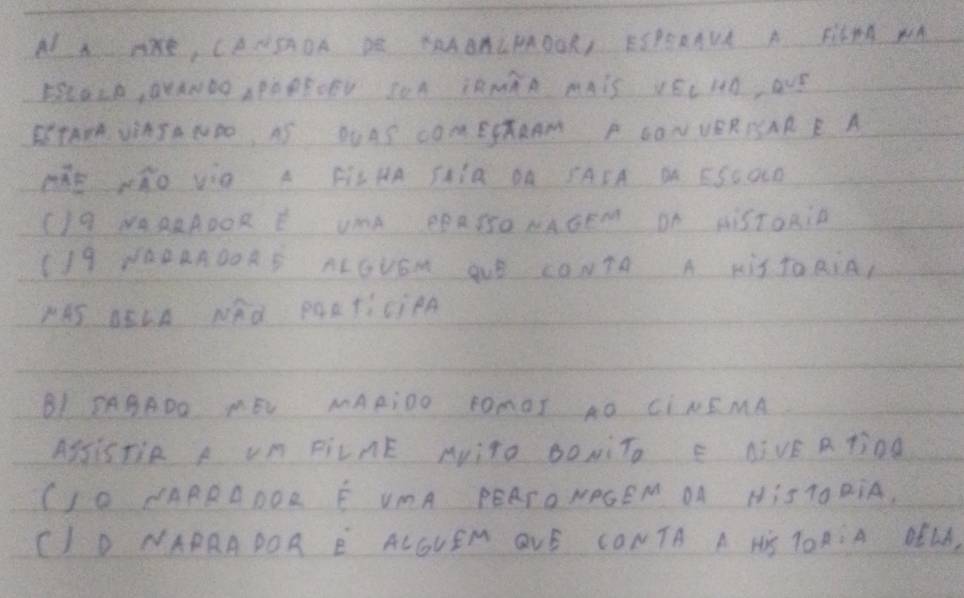 A) A MÃE, CANSADA DE TRABALHADOR, ESPERAVA A FILHA NA
ESCOLA, QUANDO APARECEU SUA IRMÃA MAIS VELHA, QUE
ESTAVA VIAJANDO, AS DUAS COMEÇARAM A CONVERSAR E A
MÃE NÃO VIO A FILHA SAIR DA SASA DA ESCOLA
( ) 9 NARRADOR É UMA PERSSONAGEM DA HISTORIA
( ) 9 NARRADOR É ALGUEM QUE CONTA A HISTORIA,
MAS DELA NÃO PARTICIPA
B) SABADO MEU MARIDO FOMOS AO CINEMA
ASSISTIR A UM FILME MUITO BONITO E DIVERTIDO
( ) O NARRADOR É UMA PERSONAGEM DA HISTORIA.
( ) O NARRADOR É ALGUEM QUE CONTA A HISTORIA DELA,